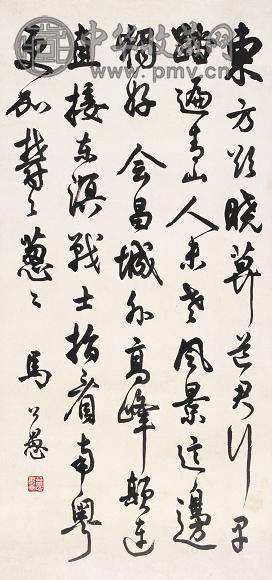 中华收藏网
www.pmv.cn
東方欲曉莫道君行早
踏遍青山人未老風景這邊
獨好會昌城外高峰顛連
直接东溟戰士指看南粵
更加鬱々葱々 馬公愚